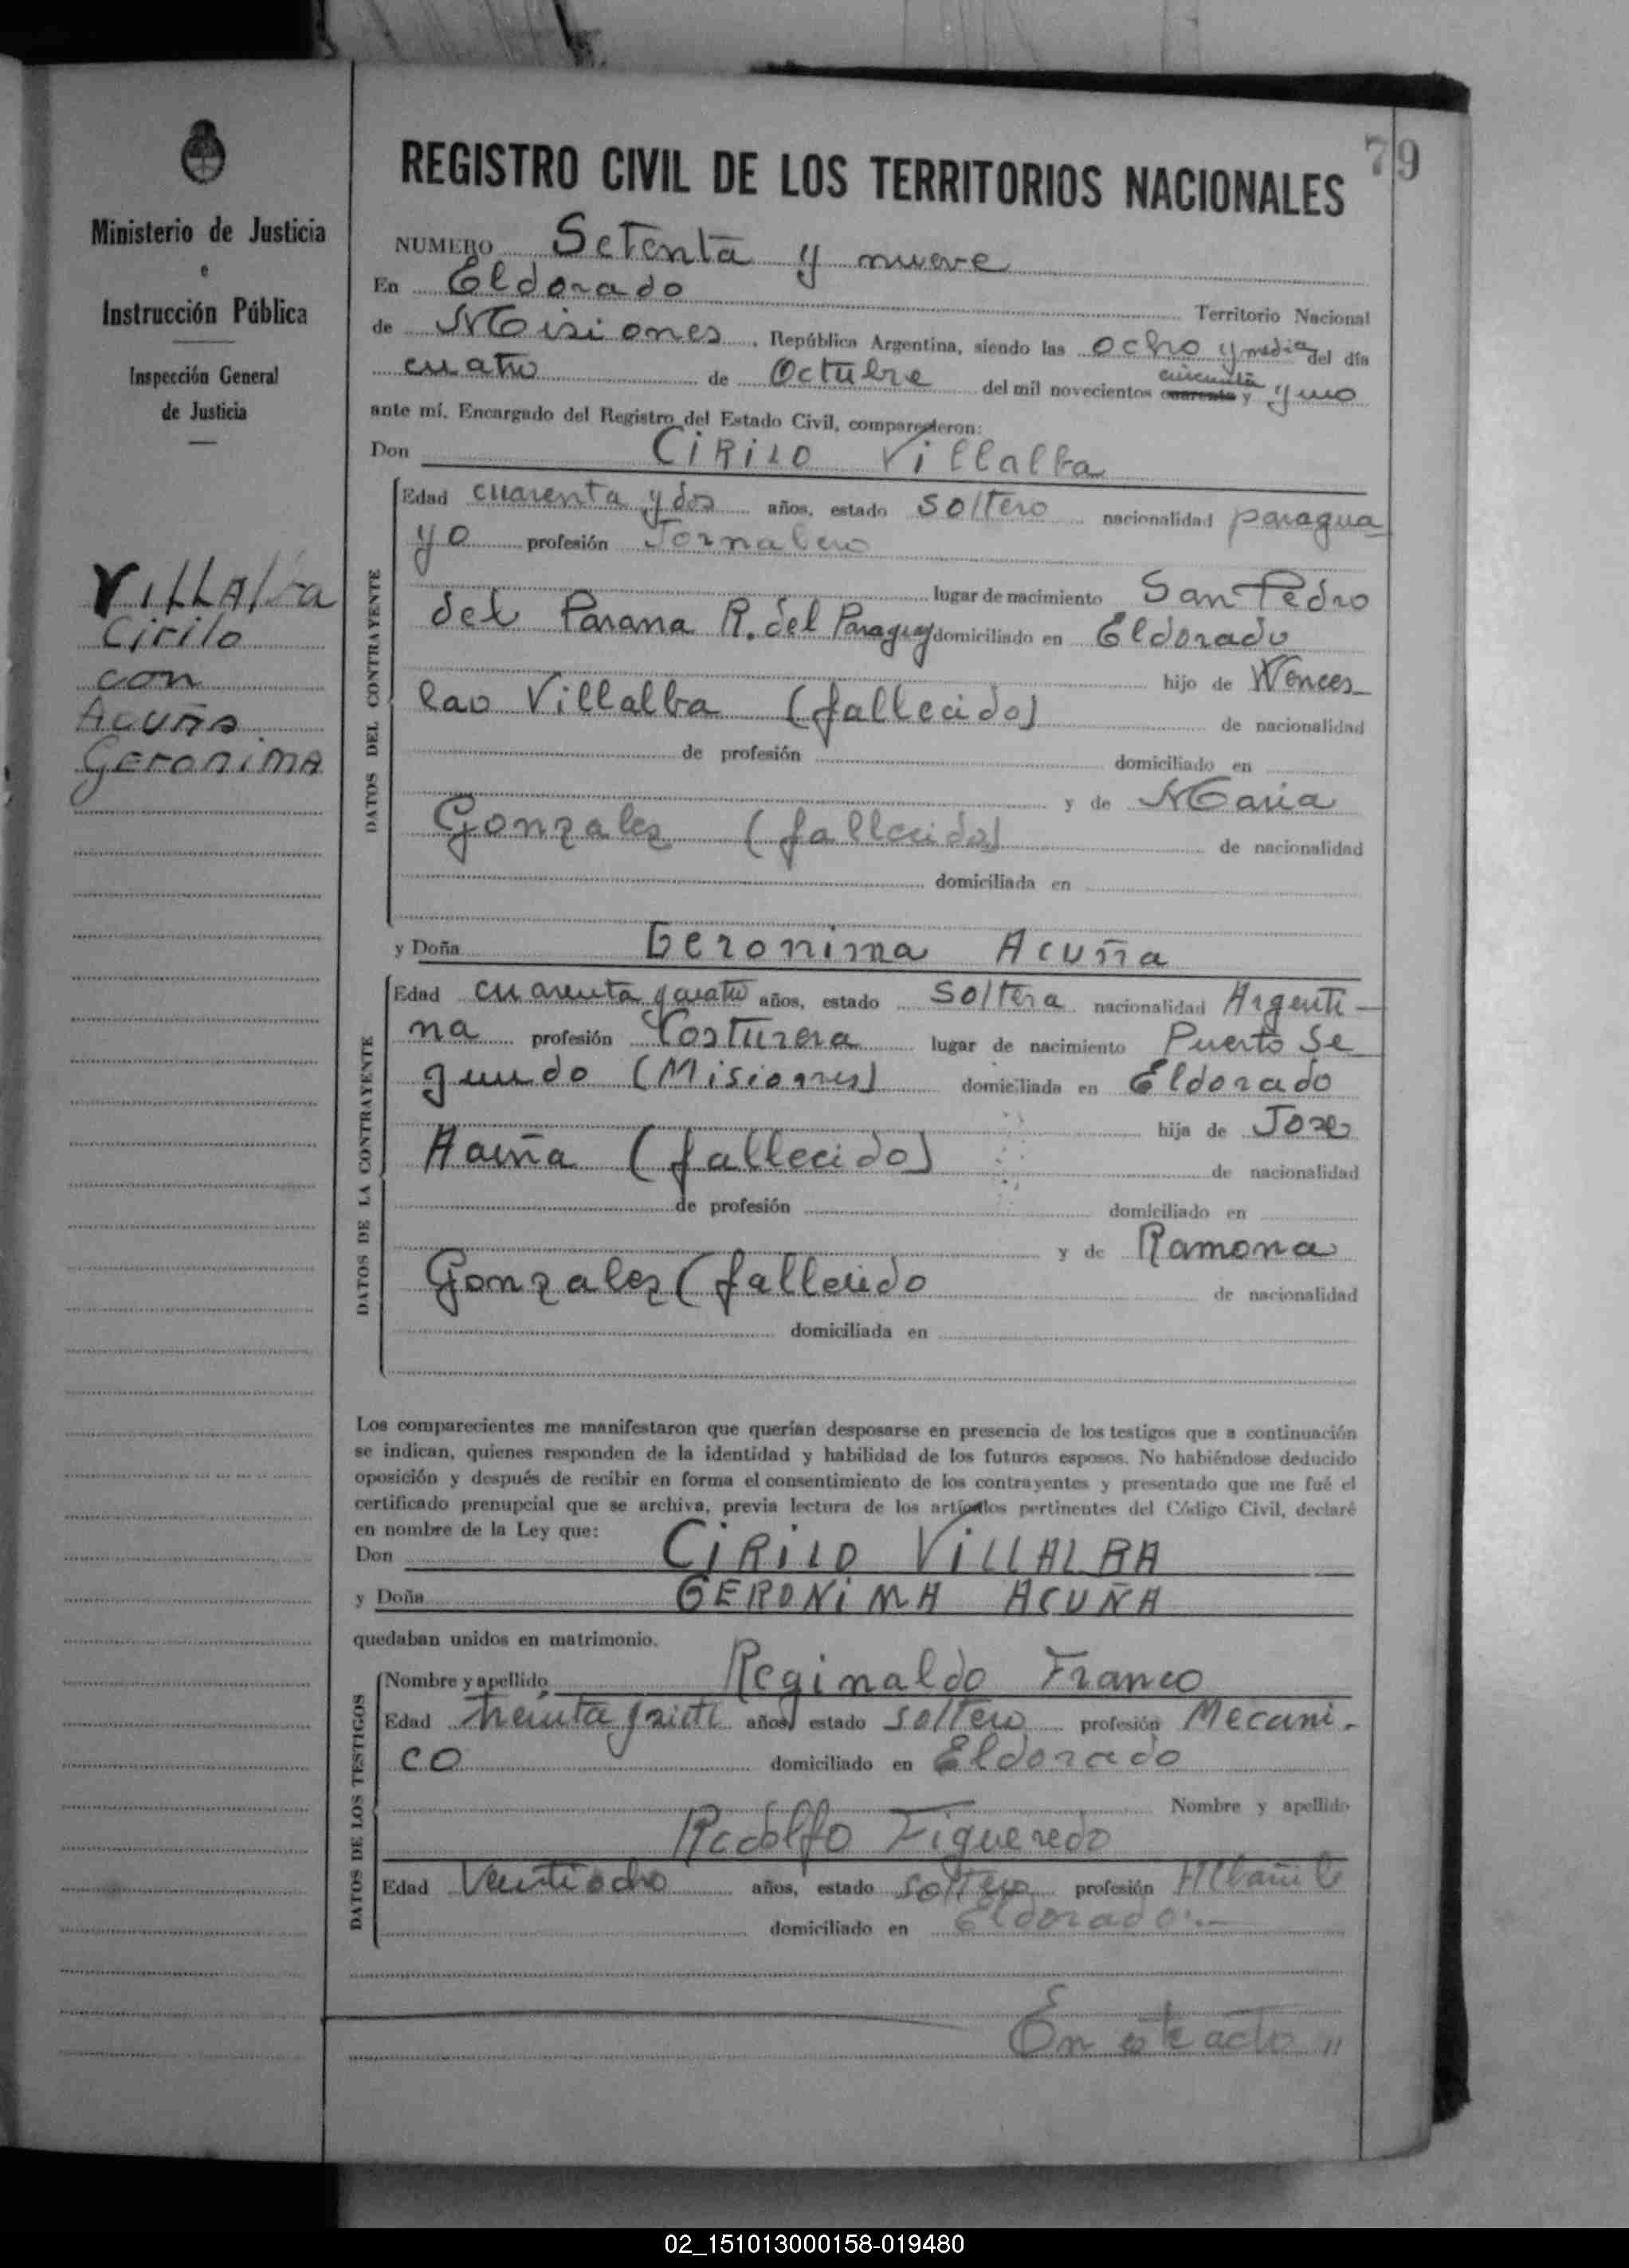 79
REGISTRO CIVIL DE LOS TERRITORIOS NACIONALES
Ministerio de Justicia
e
Instrucción Pública
Inspección General
de Justicia
Villalba
Cirilo
con
Acuña
Geronima
NUMERO Setenta y nueve
En Eldorado Territorio Nacional
de Misiones, República Argentina, siendo las ocho y media del día
cuatro de Octubre del mil novecientos cuarenta y cincuenta y uno
ante mí, Encargado del Registro del Estado Civil, comparecieron:
Don Cirilo Villalba
DATOS DEL CONTRAYENTE
Edad cuarenta y dos años, estado soltero nacionalidad paragua
yo profesión Jornalero
lugar de nacimiento San Pedro
del Parana R. del Paraguay domiciliado en Eldorado
hijo de Wences
lao Villalba (fallecido) de nacionalidad
de profesión domiciliado en
y de Maria
Gonzalez (fallecida) de nacionalidad
domiciliada en
y Doña Geronima Acuña
DATOS DE LA CONTRAYENTE
Edad cuarenta y cuatro años, estado soltera nacionalidad Argenti-
na profesión Costurera lugar de nacimiento Puerto Se
gundo (Misiones) domiciliada en Eldorado
hija de Jose
Acuña (fallecido) de nacionalidad
de profesión domiciliado en
y de Ramona
Gonzalez (fallecido de nacionalidad
domiciliada en
Los comparecientes me manifestaron que querían desposarse en presencia de los testigos que a continuación
se indican, quienes responden de la identidad y habilidad de los futuros esposos. No habiéndose deducido
oposición y después de recibir en forma el consentimiento de los contrayentes y presentado que me fué el
certificado prenupcial que se archiva, previa lectura de los artículos pertinentes del Código Civil, declaré
en nombre de la Ley que:
Don CIRILO VILLALBA
y Doña GERONIMA ACUÑA
quedaban unidos en matrimonio.
DATOS DE LOS TESTIGOS
Nombre y apellido Reginaldo Franco
Edad treinta y siete años, estado soltero profesión Mecani-
co domiciliado en Eldorado
Nombre y apellido
Rodolfo Figueredo
Edad Veintiocho años, estado soltero profesión Albañil
domiciliado en Eldorado.-
En este acto "
02_151013000158-019480